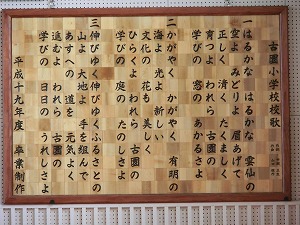 古園小学校校歌
一 はるかな はるかな 雲仙の
空よ みどりよ 眉あげて
正しく 清く たくましく
育つよ われら 古園の
学びの 窓の あかるさよ
二 かがやく かがやく 有明の
海よ 光よ 新しい
文化の 花も 美しく
ひらくよ われら 古園の
学びの 庭の たのしさよ
三 伸びゆく 伸びゆく ふるさとの
山よ 大地よ 手を組んで
あすへの 道を 元気よく
進むよ われら 古園の
学びの 日日の うれしさよ
平成十九年度 卒業制作